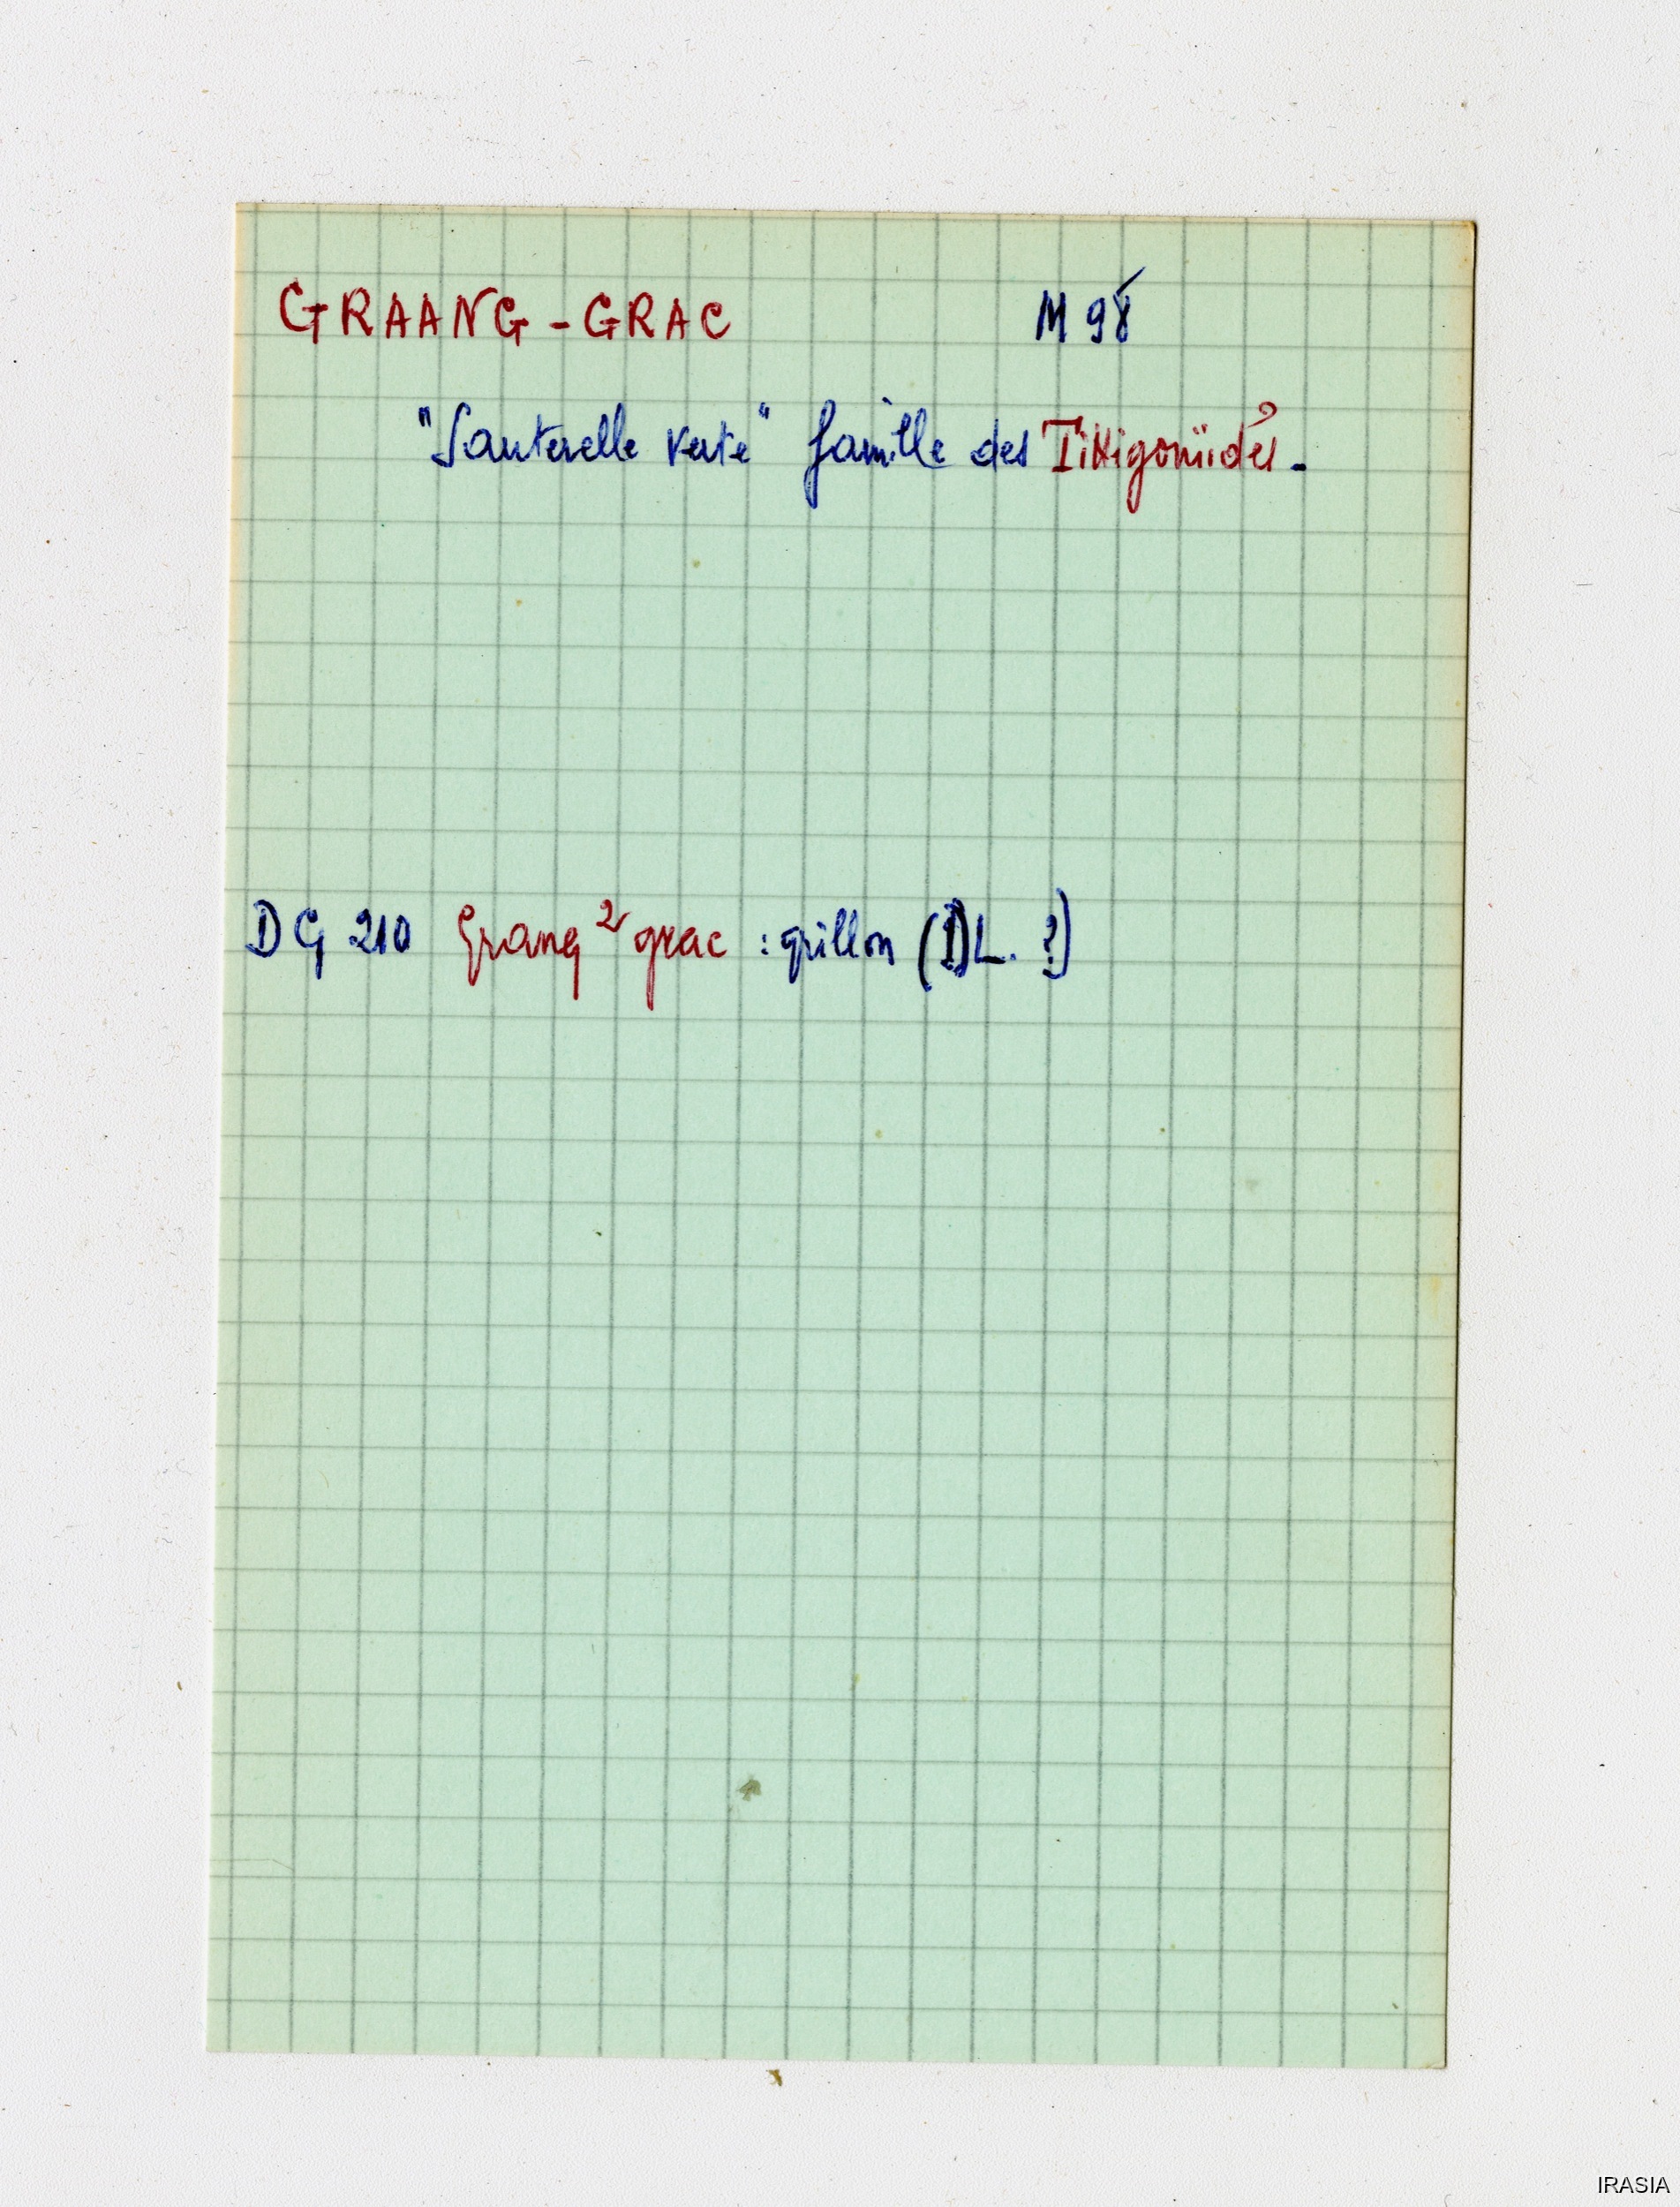 GRAANG - GRAC M 98
"Sauterelle verte" famille des Tittigoniidés.
DG 210 Grang² grac : grillon (DL. ?)
IRASIA